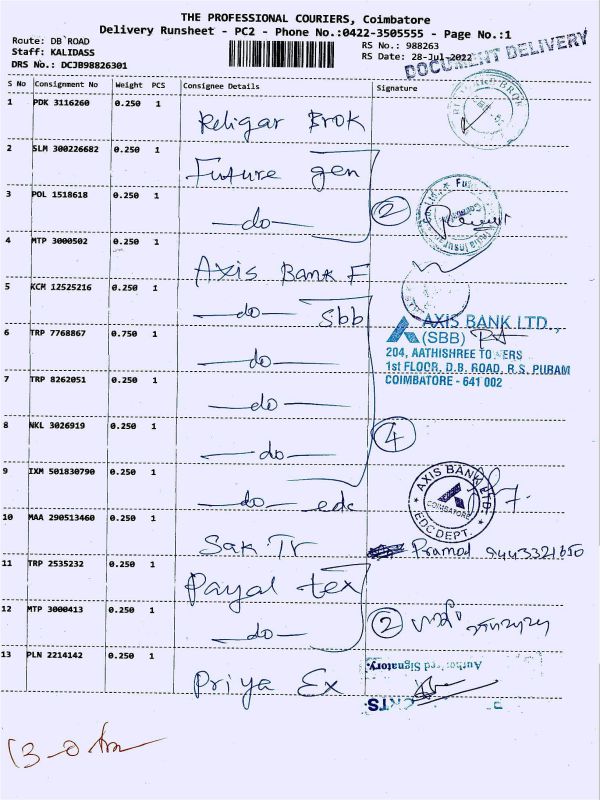 THE PROFESSIONAL COURIERS, Coimbatore
Delivery Runsheet - PC2 - Phone No.:0422-3505555 - Page No.:1
Route: DB ROAD
Staff: KALIDASS
DRS No.: DCJB98826301
RS No.: 988263
RS Date: 28-Jul-2022
DOCUMENT DELIVERY
S No Consignment No Weight PCS Consignee Details Signature
1 PDK 3116260 0.250 1 Religar Brok
2 SLM 300226682 0.250 1 Future gen
3 POL 1518618 0.250 1 -do- 2
4 MTP 3000502 0.250 1 Axis Bank F
5 KCM 12525216 0.250 1 -do- Sbb
AXIS BANK LTD.,
(SBB)
204, AATHISHREE TOWERS
1st FLOOR, D.B. ROAD, R.S. PURAM
COIMBATORE - 641 002
6 TRP 7768867 0.750 1 -do-
7 TRP 8262051 0.250 1 -do-
8 NKL 3026919 0.250 1 -do- 4
9 IXM 501830790 0.250 1 -do- edc
AXIS BANK LTD.
COIMBATORE
EDC DEPT.
10 MAA 290513460 0.250 1 Sak Tr Pramod
11 TRP 2535232 0.250 1 Payal tex
12 MTP 3000413 0.250 1 -do- 2
13 PLN 2214142 0.250 1 Priya Ex
Authorised Signatory.